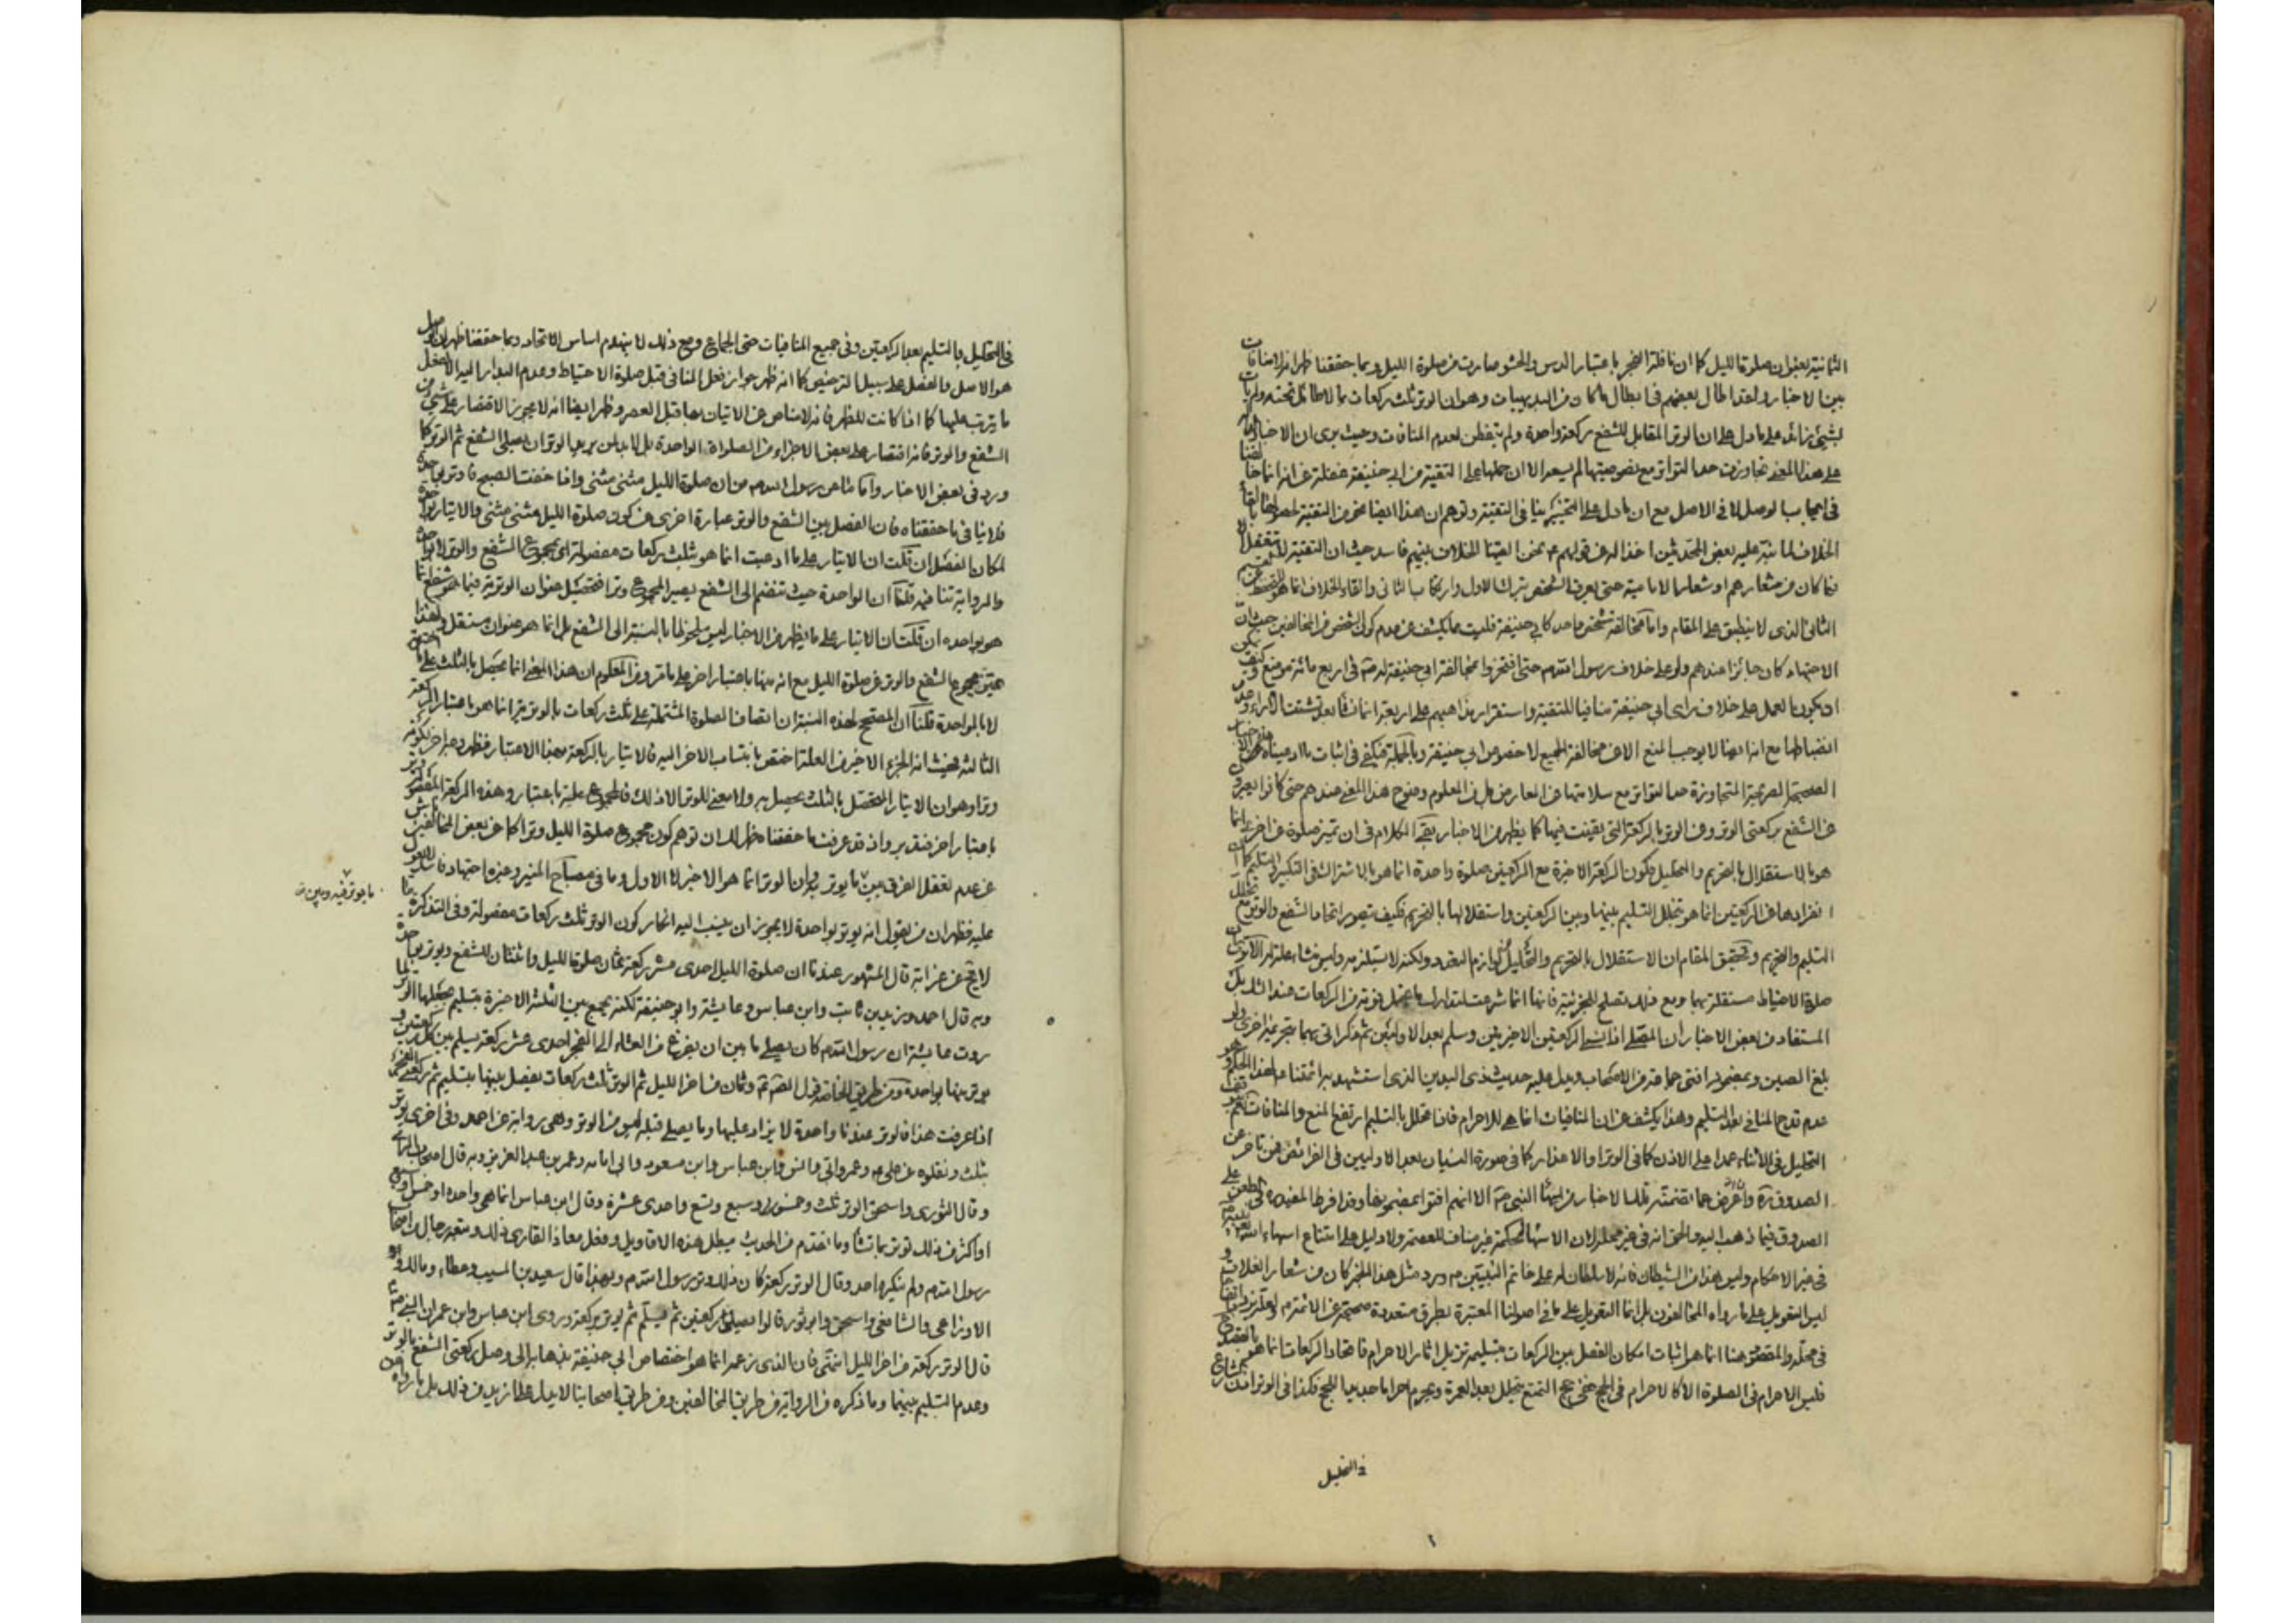 الثمانية بعنوان صلوة الليل كما ان نافلة الفجر باعتبار الدس والحشو صارت من صلوة الليل وبما حققنا ظهر انه لا منافات
بين الاخبار ولقد اطال بعضهم فى ابطال ما كان من البديهيات وهو ان الوتر ثلث ركعات بما لا طائل تحته ولم يات
بشئ زائد على ما دل على ان الوتر المقابل للشفع ركعة واحدة ولم يتفطن لعدم المنافات وحيث يرى ان الاخبار
على هذا المعنى تجاوزت حد التواتر مع نصوصيتها لم يسعه الا ان حملها على التقية من ابي حنيفة غفلة عن انه انما خالفنا
فى ايجاب الوصل لا فى الاصل مع ان ما دل على التخيير ينافى التقية وتوهم ان هذا ايضا نحو من التقية لحصول القاء
الخلاف لما نبه عليه بعض المحدثين اخذا له من قولهم ع نحن القينا الخلاف بينهم فاسد حيث ان التقية
فيما كان من شعارهم او شعار الامامية حتى يعرف الشخص بترك الاول وارتكاب الثانى والقاء الخلاف انما هو
الثانى الذى لا ينطبق على المقام واما مخالفة شخص واحد كابي حنيفة فليست مما يكشف عن عدم كون الشخص من المخالفين حيث ان
الاجتهاد كان جائزا عندهم ولو على خلاف رسول الله ص حتى افتخروا بمخالفة ابي حنيفة له ص فى اربع مائة موضع وكيف يكون
ان يكون العمل على خلاف راى ابي حنيفة منافيا للتقية واستقرار مذاهبهم على اربعة انما نشأ بعد تشتت الآراء وعدم
انضباطها مع انه ايضا لا يوجب المنع الا من مخالفة الجميع لا خصوص ابي حنيفة وبالجملة فيكفى فى اثبات ما ادعيناه
الصحيحة الصريحة المتجاوزة حد التواتر مع سلامتها من المعارض بل من المعلوم وضوح هذا المعنى عندهم حتى كانوا يعبرون
عن الشفع بركعتى الوتر وعن الوتر بالركعة التى بقيت فيها كما يظهر من الاخبار بقى الكلام فى ان تميز صلوة عن اخرى انما
هو بالاستقلال بالتحريم والتحليل فكون الركعة الاخيرة مع الركعتين صلوة واحدة انما هو بالاشتراك فى التكبير والتسليم كما ان
انفرادها من الركعتين انما هو بتخلل التسليم بينها وبين الركعتين واستقلالها بالتحريم فكيف يتصور اتحاد الشفع والوتر مع تخلل
التسليم والتحريم وتحقيق المقام ان الاستقلال بالتحريم والتحليل من لوازم التعدد ولكنه لا يستلزمه وليس منشاء علة له الا ترى ان
صلوة الاحتياط مستقلة بهما ومع ذلك تصلح للجزئية فانها انما شرعت لتدارك ما يحتمل فوته من الركعات عند الشك بل
المستفاد من بعض الاخبار ان المصلى اذا نسى الركعتين الاخيرتين وسلم بعد الاوليين ثم ذكر اتى بهما بتحريمة اخرى ولو
بلغ الصين وبمضمونه افتى جماعة من الاصحاب ويدل عليه حديث ذى اليدين الذى استشهد به ائمتنا ع لهذا الحكم وهو
عدم قدح المنافى بعد التسليم وهذا يكشف عن ان المنافيات انما هى للاحرام فاذا تحلل بالتسليم ارتفع المنع والمنافات
التحليل فى الاثناء عمدا على الاذن كما فى الوتر او الاعذار كما فى صورة النسيان بعد الاوليين فى الفرائض
الصدوق ره واعرض عما تضمنته تلك الاخبار من اسهاء النبى ص الا انهم افتوا بمضمونها وقد افرط المفيد ره فى الطعن على
الصدوق فيما ذهب اليه والحق انه فى غير محله لان الاسهاء لحكمة غير مناف للعصمة ولا دليل على امتناع اسهاء الله
فى غير الاحكام وليس هذا من الشيطان فانه لا سلطان له على خاتم النبيين ص وورود مثل هذا الخبر كان من شعار الغلات و
ليس التعويل على ما رواه المخالفون بل انما التعويل على ما فى اصولنا المعتبرة بطرق متعددة صحيحة عن الائمة ع
فى محله والمقصود هنا انما هو اثبات امكان الفصل بين الركعات بتسليمة تزيل اثار الاحرام فاتحاد الركعات انما هو بالقصد
فليس الاحرام فى الصلوة الا كالاحرام فى الحج ففى حج التمتع يتحلل بعد العمرة ويحرم احراما جديدا للحج فكذا فى الوتر اذن الشارع
فى التحليل
فى التحليل بالتسليم بعد الركعتين وفى جميع المنافيات حتى الجماع ومع ذلك لا ينهدم اساس الاتحاد وبما حققنا ظهر ان الوصل
هو الاصل والفصل على سبيل الترخيص كما انه ظهر جواز فعل المنافى قبل صلوة الاحتياط وعدم البدار اليه
ما يترتب عليها كما اذا كانت للظهر فانه لا مناص عن الاتيان بها قبل العصر وظهر ايضا انه لا يجوز الاقتصار على شئ من
الشفع والوتر فانه اقتصار على بعض الاجزاء من الصلواة الواحدة بل لا بد لمن يريد الوتر ان يصلى الشفع ثم الوتر كما
ورد فى بعض الاخبار واما ما عن رسول الله ص من ان صلوة الليل مثنى مثنى واذا خفت الصبح فاوتر بواحدة
فلا ينافى ما حققناه فان الفصل بين الشفع والوتر عبارة اخرى عن كون صلوة الليل مثنى مثنى والايتار بواحدة
لمكان الفصل ان قلت ان الايتار على ما ادعيت انما هو بثلث ركعات مفصولة اى مجموع الشفع والوتر لا بواحدة
والرواية تنافيه قلنا ان الواحدة حيث تنضم الى الشفع يصير المجموع وترا فتحصيل عنوان الوترية فيما هو شفع انما
هو بواحدة ان قلت ان الايتار على ما يظهر من الاخبار ليس ملحوظا بالنسبة الى الشفع بل انما هو عنوان مستقل ولهذا
يميز مجموع الشفع والوتر عن صلوة الليل مع انه منها باعتبار اخر على ما مر ومن المعلوم ان هذا المعنى انما يحصل بالثلث على ما
لا بالواحدة قلنا ان المصحح لهذه النسبة ان اتصاف الصلوة المشتملة على ثلث ركعات بالوترية انما هو باعتبار الركعة
الثالثة فحيث انه الجزء الاخير من العلة اختص بانتساب الاثر اليه فالايتار بالركعة بهذا الاعتبار فظهر وجه اخر لكونه
وترا وهو ان الايتار المتحصل بالثلث يحصل به ولا معنى للوتر الا ذلك فالمجموع علة باعتبار وهذه الركعة المفصولة
باعتبار اخر فتدبر واذ قد عرفت ما حققنا ظهر لك ان توهم كون مجموع صلوة الليل وترا كما عن بعض المخالفين ناش
عن عدم تعقل الفرق بين ما يوتر به وان الوتر انما هو الاخير لا الاول وما فى مصباح المنير وغيره اجتهاد فاسد
عليه فظهر ان من يقول انه يوتر بواحدة لا يجوز ان ينسب اليه انكار كون الوتر ثلث ركعات مفصولة وفى التذكرة ما
لا يخ عن غرابة قال المشهور عندنا ان صلوة الليل احدى عشر ركعة ثمان صلوة الليل واثنتان للشفع ويوتر بواحدة
وبه قال احمد وزيد بن ثابت وابن عباس وعايشة وابو حنيفة لكنه يجمع بين الثلثة الاخيرة بتسليم يجعلها الوتر لما
روت عايشة ان رسول الله ص كان يصلى ما بين ان يفرغ من العشاء الى الفجر احدى عشر ركعة يسلم بين كل ركعتين و
يوتر منها بواحدة ومن طريق الخاصة قول الصادق ع وثمان من اخر الليل ثم الوتر ثلث ركعات يفصل بينها بتسليم ثم ركعتى الفجر
اذا عرفت هذا فالوتر عندنا واحدة لا يزاد عليها وما يصلى قبله ليس من الوتر وهى رواية عن احمد وفى اخرى يوتر
بثلث ونقلوه عن على ع وعمر وابى وانس وابن عباس وابن مسعود وابى امامه وعمر بن عبد العزيز وبه قال اصحاب الراى
وقال الثورى واسحق الوتر ثلث وخمس وسبع وتسع واحدى عشرة وقال ابن عباس انما هى واحدة او خمس او سبع
او اكثر من ذلك توتر بما تشاء وما تقدم من الحديث يبطل هذه الاقاويل وفعل معاذ القارى ذلك ومعه رجال من اصحاب
رسول الله ص ولم ينكره احد وقال الوتر ركعة كان ذلك وتر رسول الله ص وبهذا قال سعيد بن المسيب وعطاء ومالك و
الاوزاعى والشافعى واسحق وابو ثور قالوا يصلى ركعتين ثم يسلم ثم يوتر بركعة وروى ابن عباس وابن عمر ان النبى ص
قال الوتر ركعة من اخر الليل انتهى فان الذى زعمه انما هو اختصاص ابي حنيفة بذهابه الى وصل ركعتى الشفع بالوتر
وعدم التسليم بينهما وما ذكره من الرواية من طريق المخالفين ومن طريق اصحابنا لا يدل على ازيد من ذلك بل ما رواه
ما يوتر فيه وبين